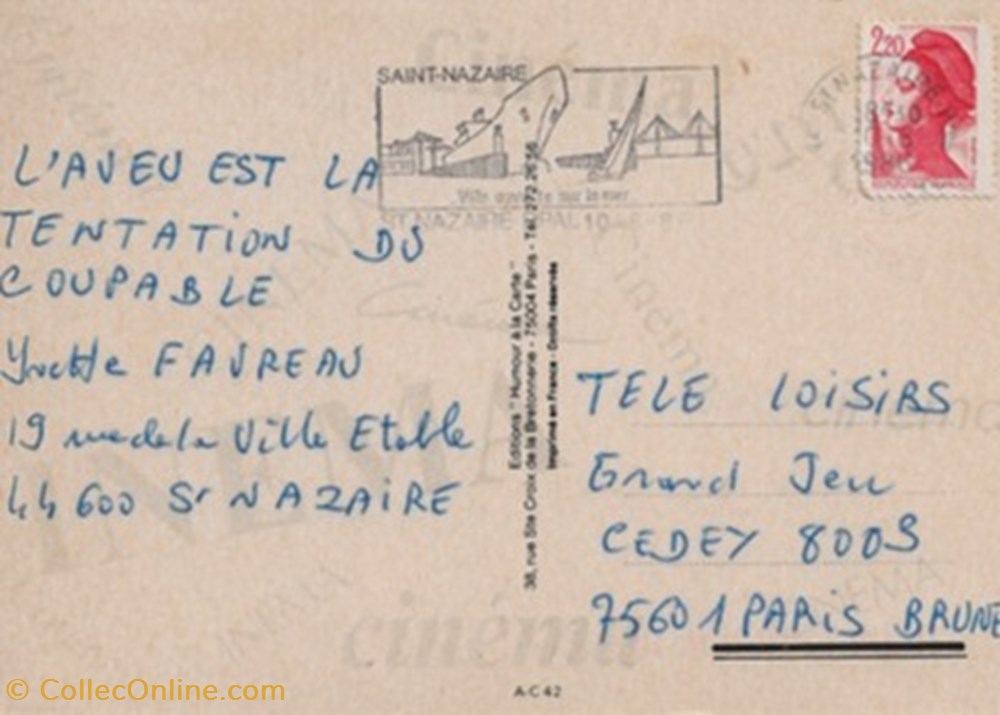 SAINT-NAZAIRE
Ville ouverte sur la mer
ST NAZAIRE PPAL 10
2,20
L'AVEU EST LA
TENTATION DU
COUPABLE
Yvette FAVREAU
19 rue de la Ville Etable
44600 St NAZAIRE
Editions "Humour à la Carte"
38, rue Ste Croix de la Bretonnerie - 75004 Paris - Tél. 272 26 56
Imprimé en France - Droits réservés
TELE LOISIRS
Grand Jeu
CEDEY 8009
75601 PARIS BRUNE
cinéma
Cinéma
cinéma
INEMA
cinéma
A-C 42
© CollecOnline.com